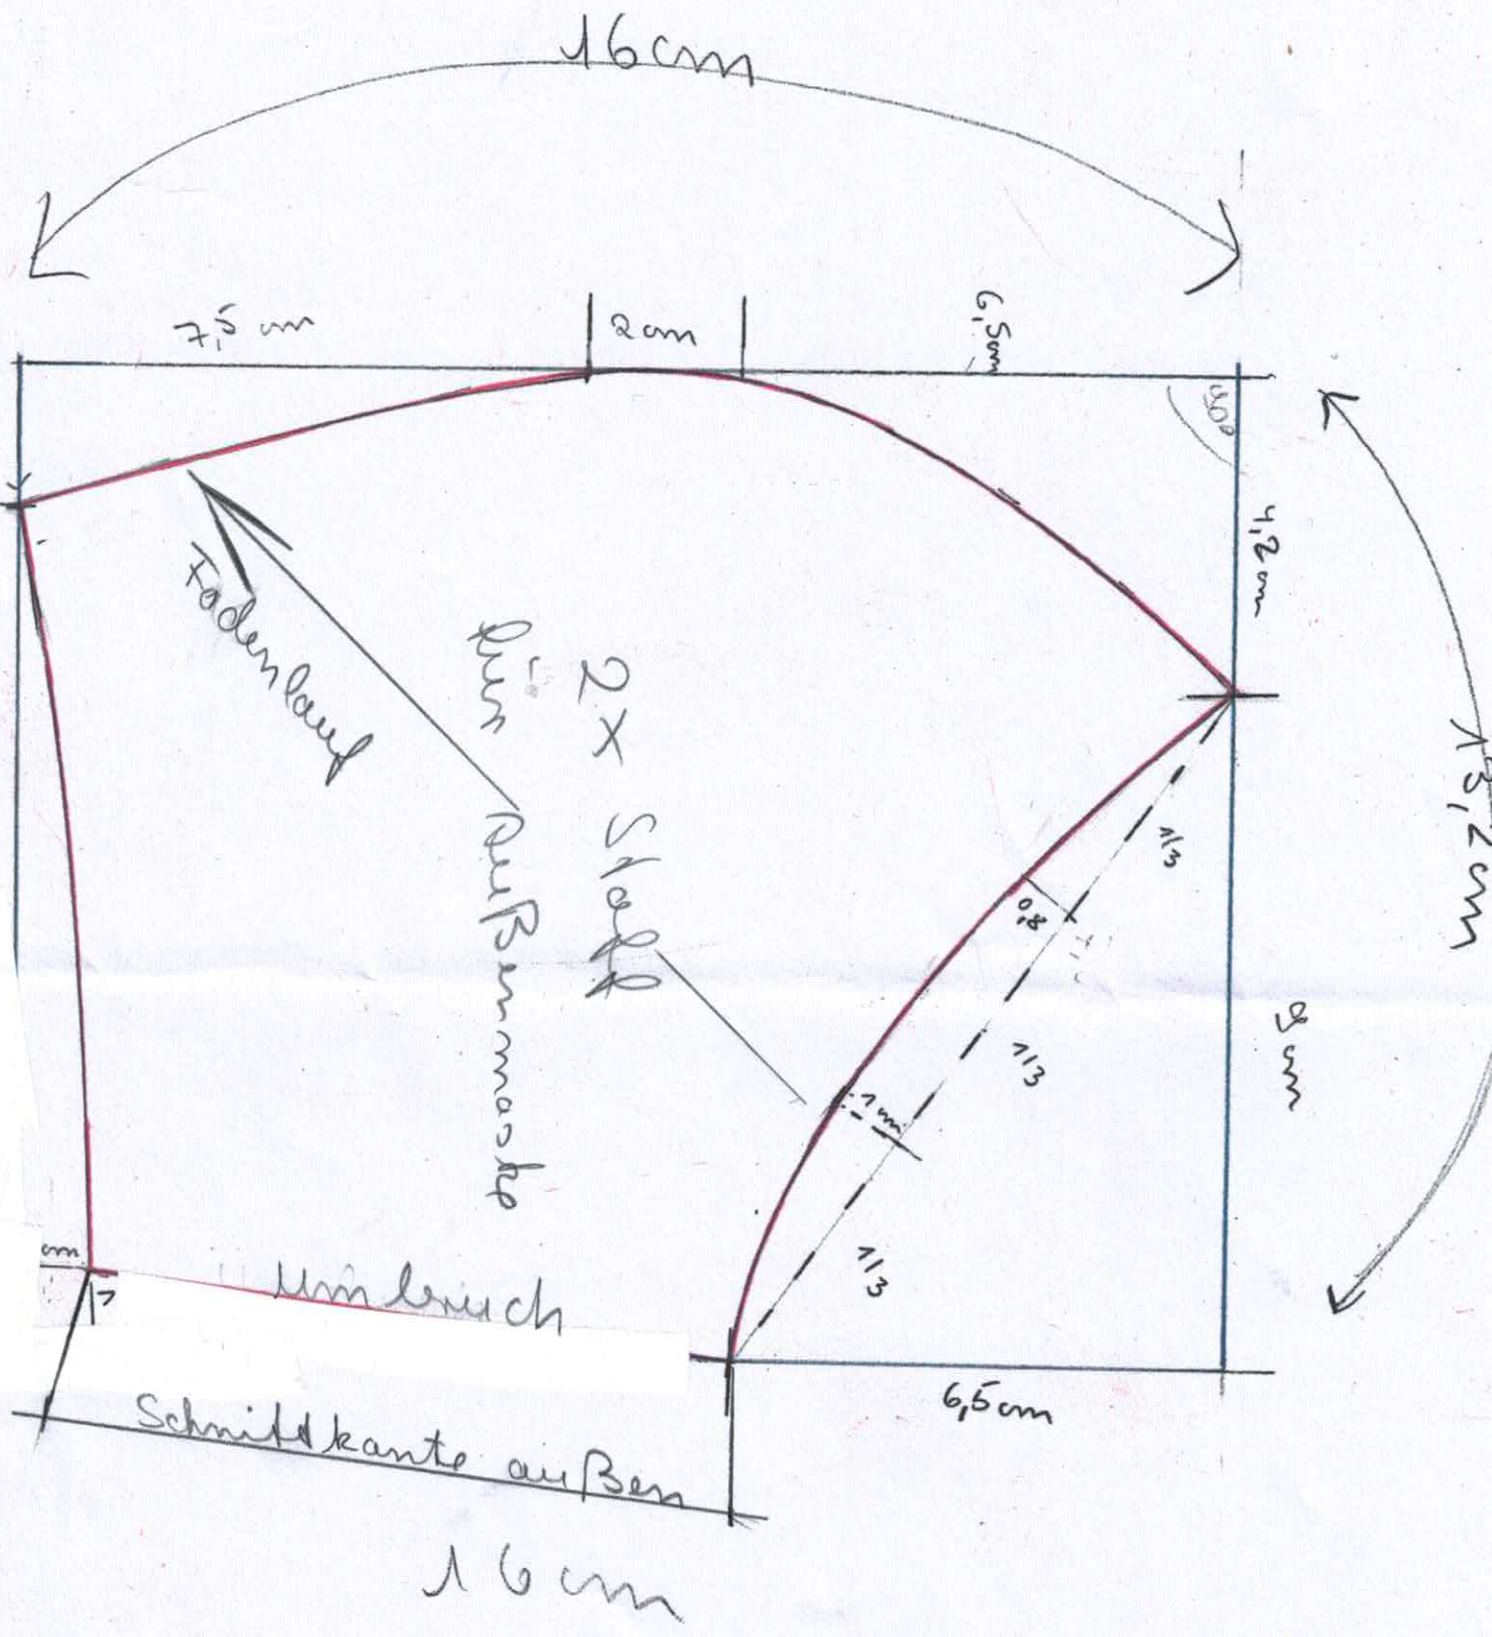 16cm
7,5 cm
2cm
6,5cm
90°
4,2 cm
Fadenlauf
2x Stoff
für Außenmaske
1/3
0,8
1/3
1 cm
1/3
13,2 cm
9 cm
cm
Umbruch
6,5cm
Schnittkante außen
16cm